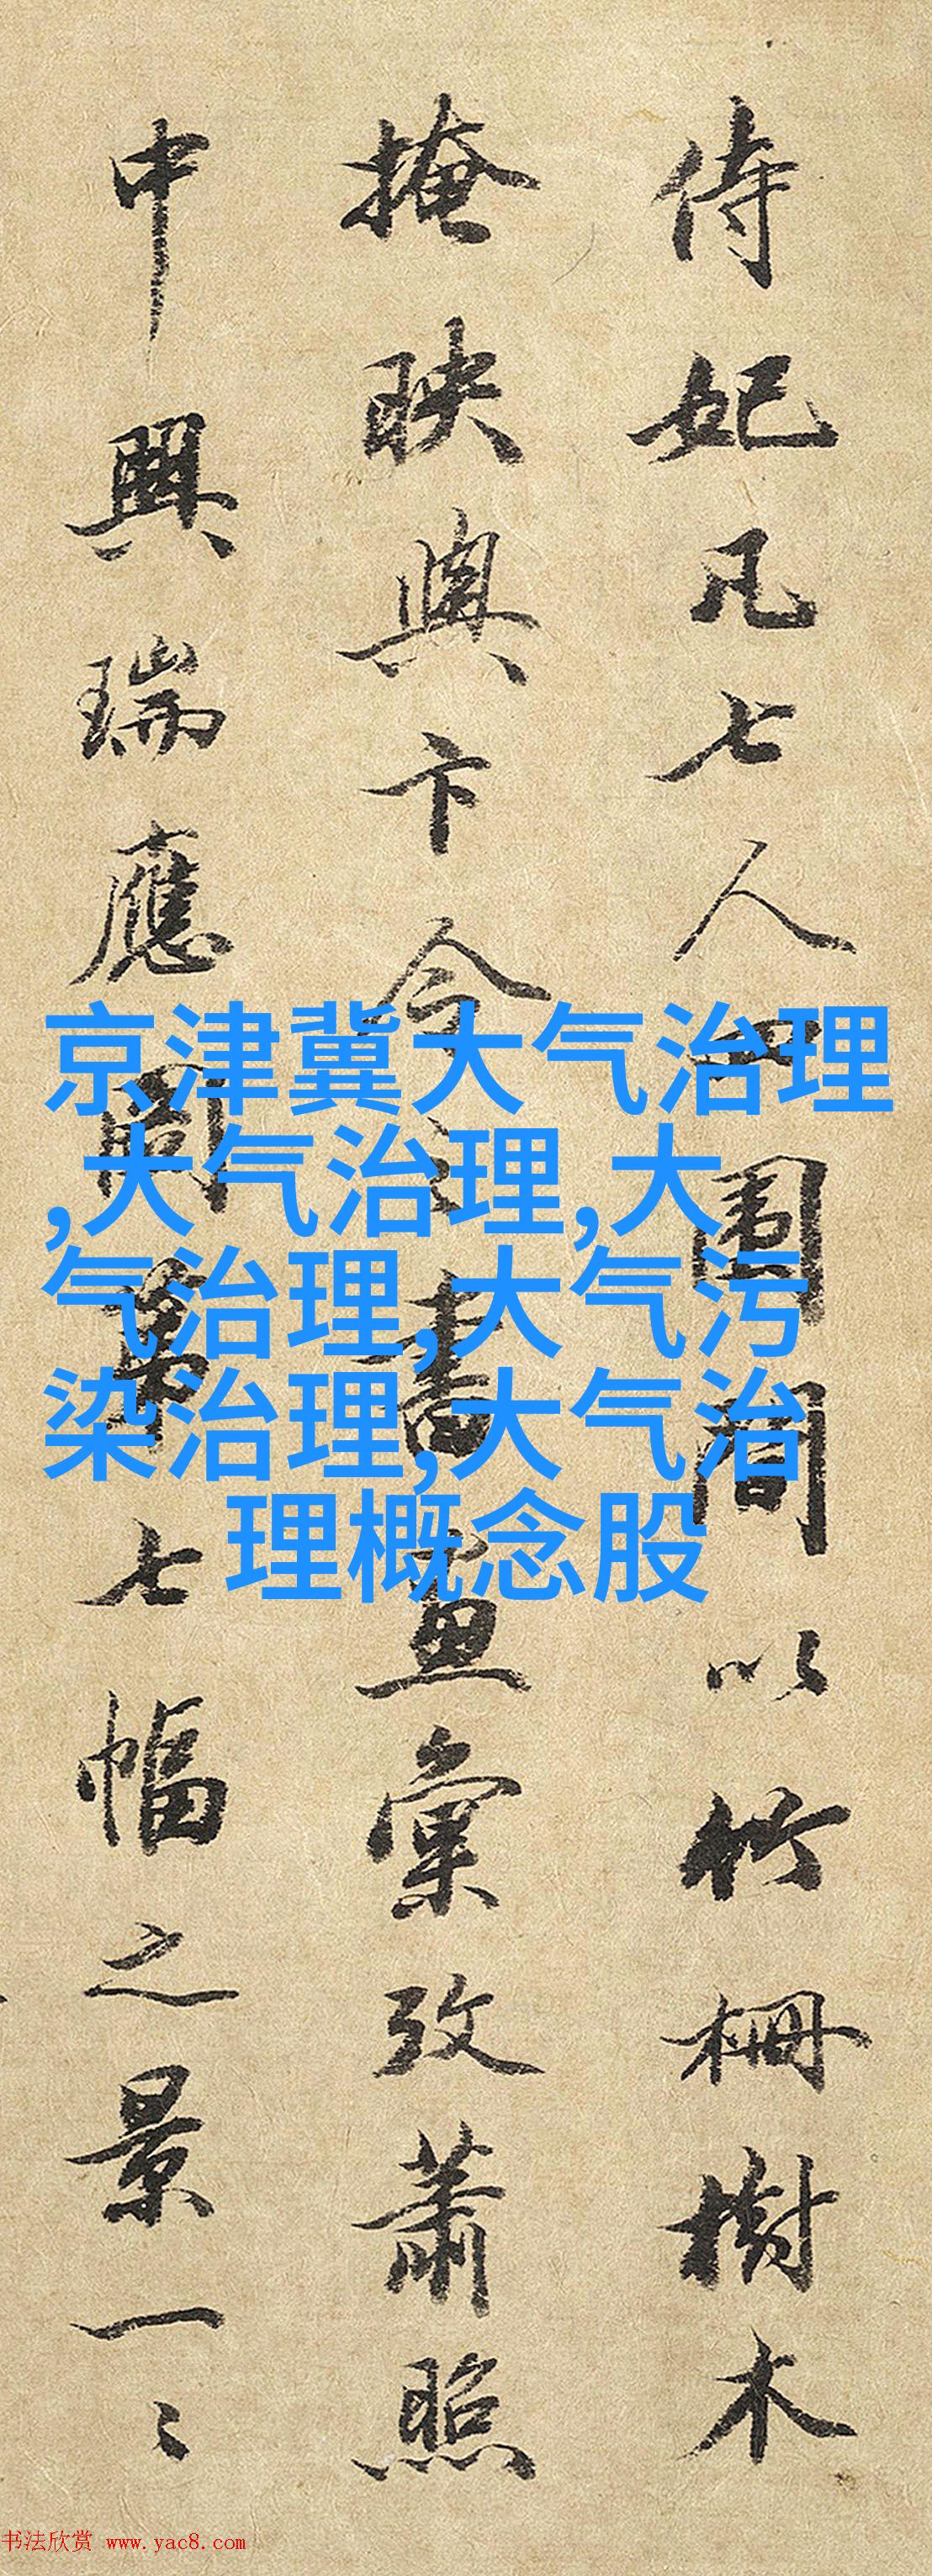 侍妃凡七人四圍間以竹柵樹木
掩映與卞令之書畫彙攷蕭照
中興瑞應圖第七幅之景一〻
京津冀大气治理
,大气治理,大
气治理,大气污
染治理,大气治
理概念股
书法欣赏 www.yac8.com